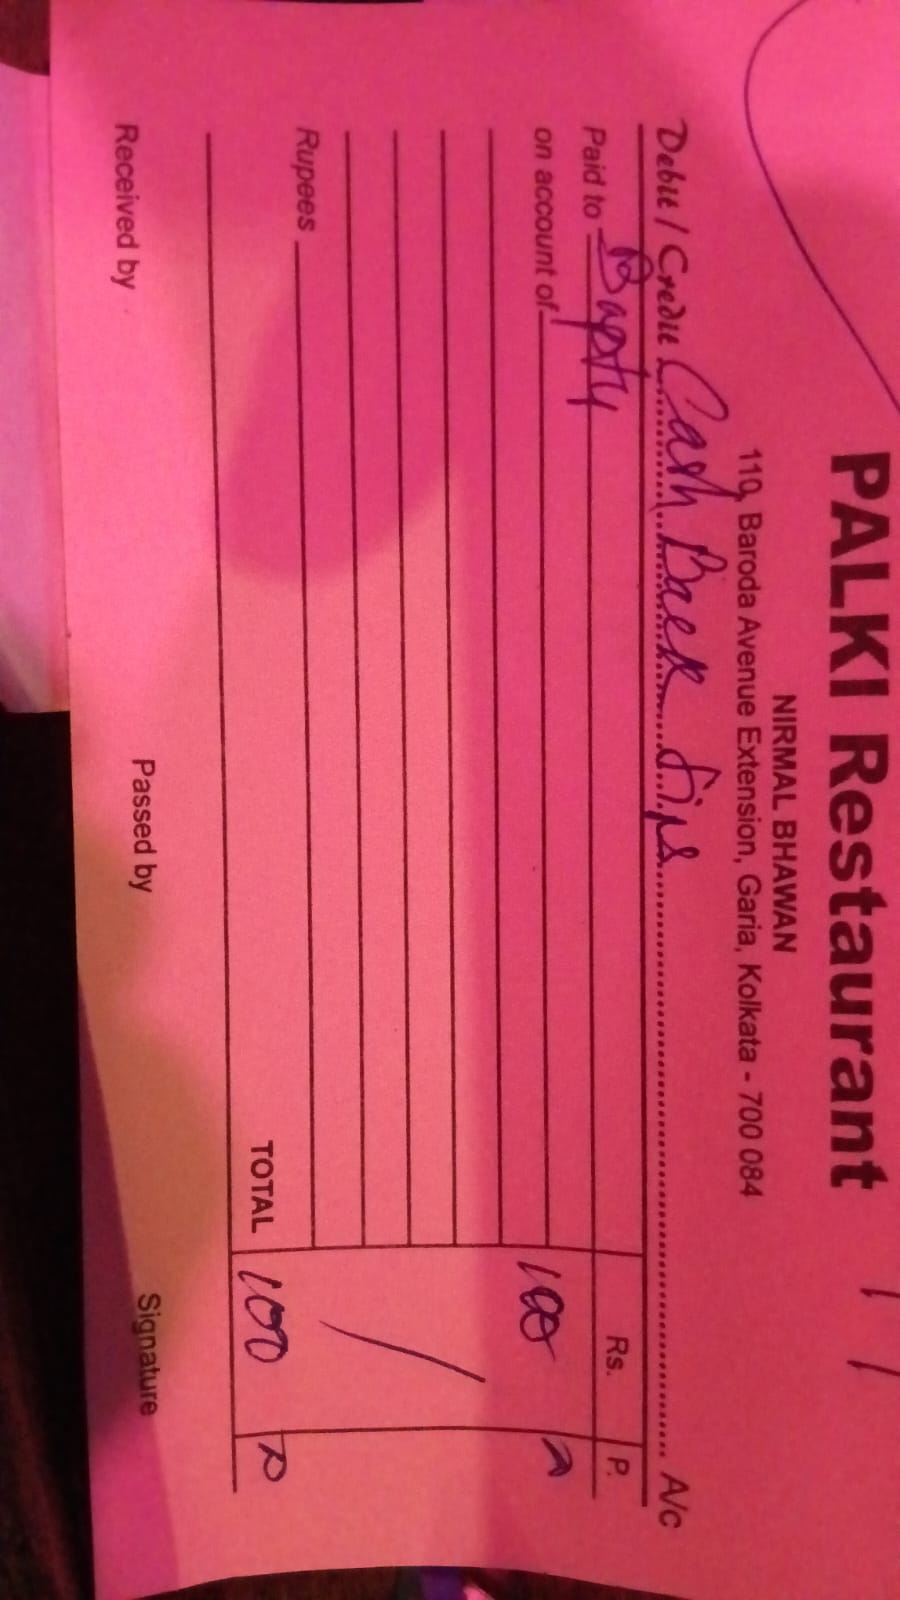 PALKI Restaurant
NIRMAL BHAWAN
110, Baroda Avenue Extension, Garia, Kolkata - 700 084
Debit / Credit Cash Back Tips A/c
Paid to Rs. P.
on account of 100
Rupees
TOTAL 100
Received by Passed by Signature